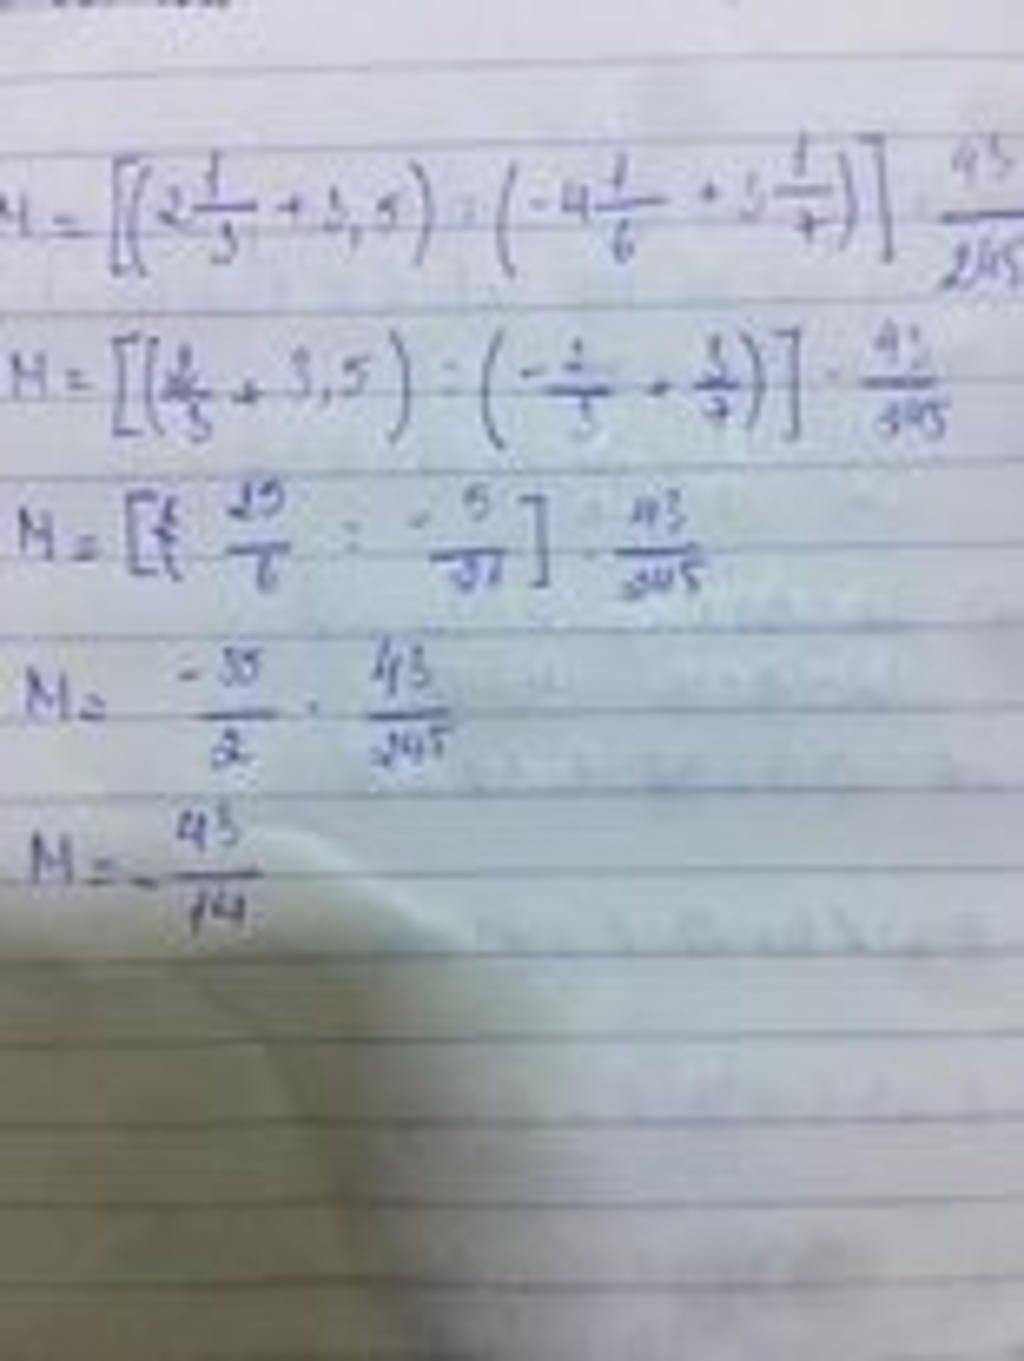 M = [(2 1/3 + 3,5) : (-4 1/6 + 3 1/7)] . 43/245
M = [(2/3 + 3,5) : (-2/3 + 3/7)] . 43/245
M = [ 25/6 : -5/21 ] . 43/245
M = -35/2 . 43/245
M = - 43/14